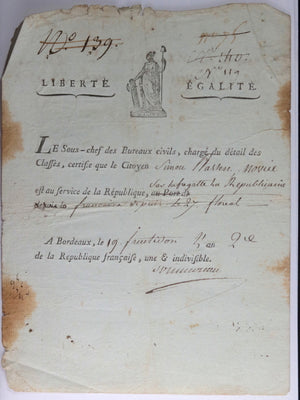 Nº 139.
LIBERTÉ.
ÉGALITÉ.
LE Sous-chef des Bureaux civils, chargé du détail des
Classes, certifie que le Citoyen Simon novice
est au service de la République, au Port d
Sur la frégatte La Républicaine
depuis le 27 floreal
A Bordeaux, le 19 fructidor L'an 2.e
de la République française, une & indivisible.